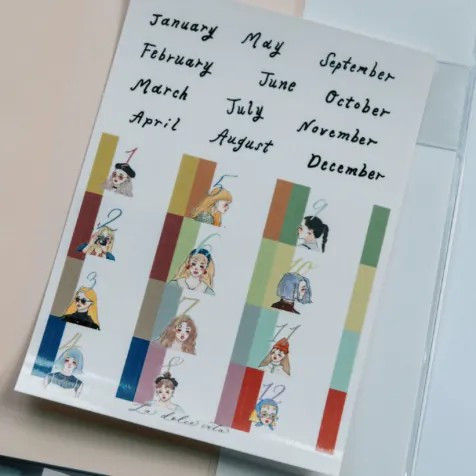 January
February
March
April
May
June
July
August
September
October
November
December
1
2
3
4
5
6
7
8
9
10
11
12
La dolce vita